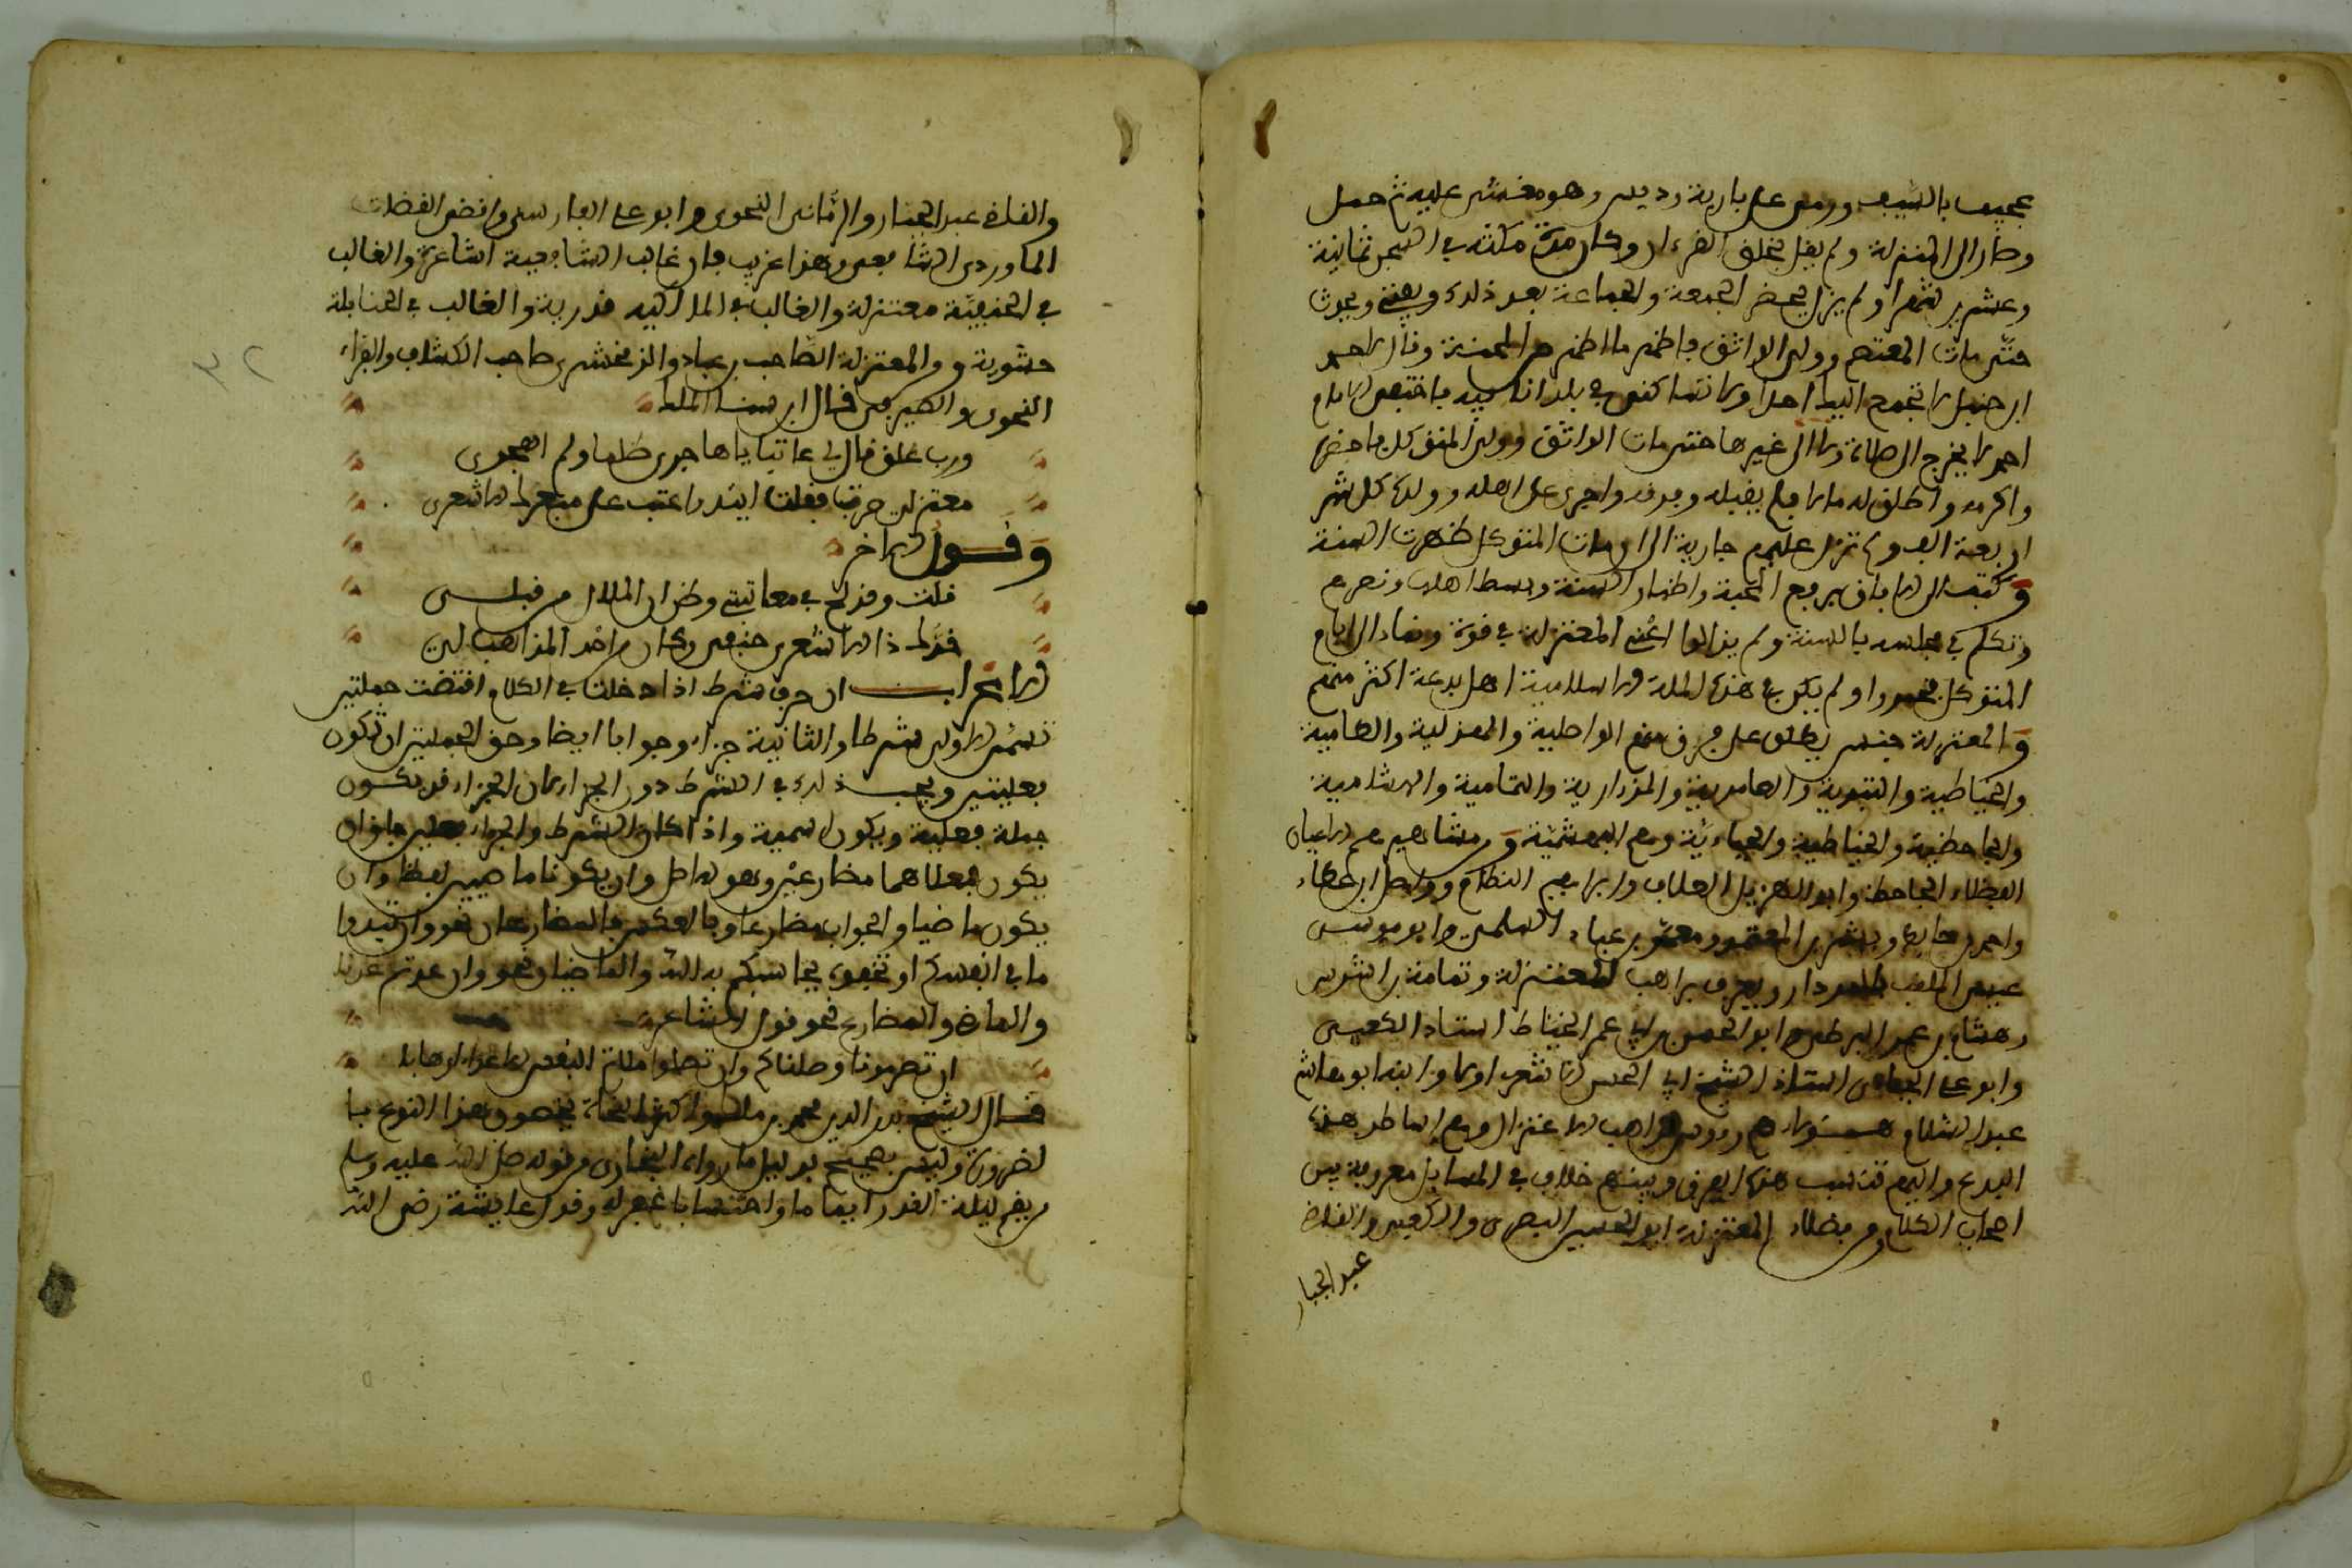 عجيف بالسيف ورمى عليه بارية وديس وهو مغشى عليه ثم حمل
وصار الى المنزلة ولم يقل بخلق القرءان وكان مدة مكثه في السجن ثمانية
وعشرين شهرا ولم يزل يحضر الجمعة والجماعة بعد ذلك ويفتى ويحدث
حتى مات المعتصم وولى الواثق فاظهر ما اظهر من المحنة وقال لاحمد
ابن حنبل لا تجمع اليك احدا ولا تساكنى في بلد انا فيه فاختفى الامام
احمد لا يخرج الى صلاة ولا الى غيرها حتى مات الواثق وولى المتوكل فاحضره
واكرمه واطلق له مالا فلم يقبله وفرقه واجرى على اهله وولده كل شهر
اربعة الاف ولم تزل عليهم جارية الى ان مات المتوكل وظهرت السنة
وكتب الى الافاق برفع المحنة واظهار السنة وبسط اهلها ونصرهم
وتكلم في مجلسه بالسنة ولم يزالوا اعنى المعتزلة في قوة ونماء الى ايام
المتوكل فخمدوا ولم يكن في هذه الملة الاسلامية اهل بدعة اكثر منهم
والمعتزلة جنس يطلق على فرق منهم الواصلية والهذلية والنظامية
والخياطية والبشرية والمعمرية والمزدارية والثمامية والهشامية
والجاحظية والخياطية والجبائية ومنهم البهشمية ومشاهيرهم الاعيان
الفضلاء الجاحظ وابو الهذيل العلاف وابراهيم النظام وواصل بن عطاء
واحمد بن حابط وبشر بن المعتمر ومعمر بن عباد السلمى وابو موسى
عيسى الملقب بالمردار ويعرف براهب المعتزلة وثمامة بن اشرس
وهشام بن عمر الفوطى وابو الحسن بن ابى عمر الخياط استاذ الكعبى
وابو على الجبائى استاذ الشيخ ابى الحسن الاشعرى اولا وابنه ابو هاشم
عبد السلام هؤلاء هم رءوس مذاهب الاعتزال وهم اساطين هذه
البدع واليهم تنسب هذه الفرق وبينهم خلاف في المسايل معروفة بين
اصحاب الكلام ومن فضلاء المعتزلة ابو الحسين البصرى والكعبى والقاضى
عبد الجبار
والقاضى عبد الجبار والرمانى النحوى وابو على الفارسى واقضى القضاة
الماوردى الشافعى وهذا غريب فان غالب الشافعية اشاعرة والغالب
في الحنفية معتزلة والغالب في المالكيه قدرية والغالب في الحنابلة
حشوية ومن المعتزلة الصاحب بن عباد والزمخشرى صاحب الكشاف والفراء
النحوى والصيرفى قال ابن سنا الملك
ورب علق قال لى عاتبا يا هاجرى ظلما ولم اهجرى
معتزلى صرت فقلت ايتد لا عتب على مبعرك الاشعرى
وقول الاخر
قلت وقد لج في معاتبتى وظن ان الملال من قبلى
خدك ذا الاشعرى حنفنى وكان من احمد المذاهب لى
الاعراب ان حرف شرط اذا دخلت في الكلام اقتضت جملتين
تسمى الاولى شرطا والثانية جزاء وجوابا ايضا وحق الجملتين ان تكون
فعليتين ويجب ذلك في الشرط دون الجزاء لان الجزاء قد يكون
جملة فعلية ويكون اسمية واذا كان الشرط والجزاء فعليين جاز ان
يكون فعلاهما مضارعين وهو الاصل وان يكونا ماضيين لفظا وان
يكون ماضيا والجواب مضارعا وبالعكس فالمضارعان نحو وان تبدوا
ما في انفسكم او تخفوه يحاسبكم به الله والماضيان نحو وان عدتم عدنا
والماضى والمضارع نحو قول الشاعر
ان تصرمونا وصلناكم وان تصلوا ملأتم انفس الاعداء ارهابا
قال الشيخ بدر الدين محمد بن مالك واكثر النحاة يخصون هذا النوع با
لضرورة وليس بصحيح بدليل ما رواه البخارى من قوله صلى الله عليه وسلم
من يقم ليلة القدر ايمانا واحتسابا غفر له وقول عايشة رضى الله
٣٢